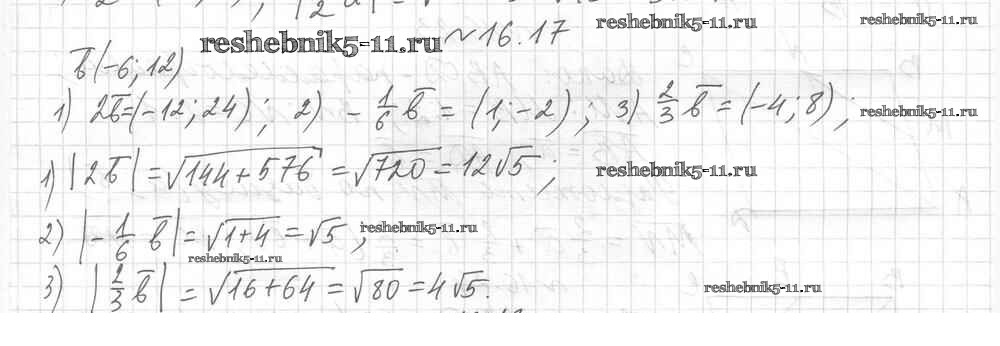 reshebnik5-11.ru № 16.17 reshebnik5-11.ru reshebnik5-11.ru
b̅ (-6; 12)
1) 2b̅=(-12; 24); 2) - 1/6 b̅ = (1; -2); 3) 2/3 b̅ = (-4; 8); reshebnik5-11.ru
1) |2b̅| = √(144+576) = √720 = 12√5; reshebnik5-11.ru
2) |- 1/6 b̅| = √(1+4) = √5; reshebnik5-11.ru
reshebnik5-11.ru
3) |2/3 b̅| = √(16+64) = √80 = 4√5. reshebnik5-11.ru